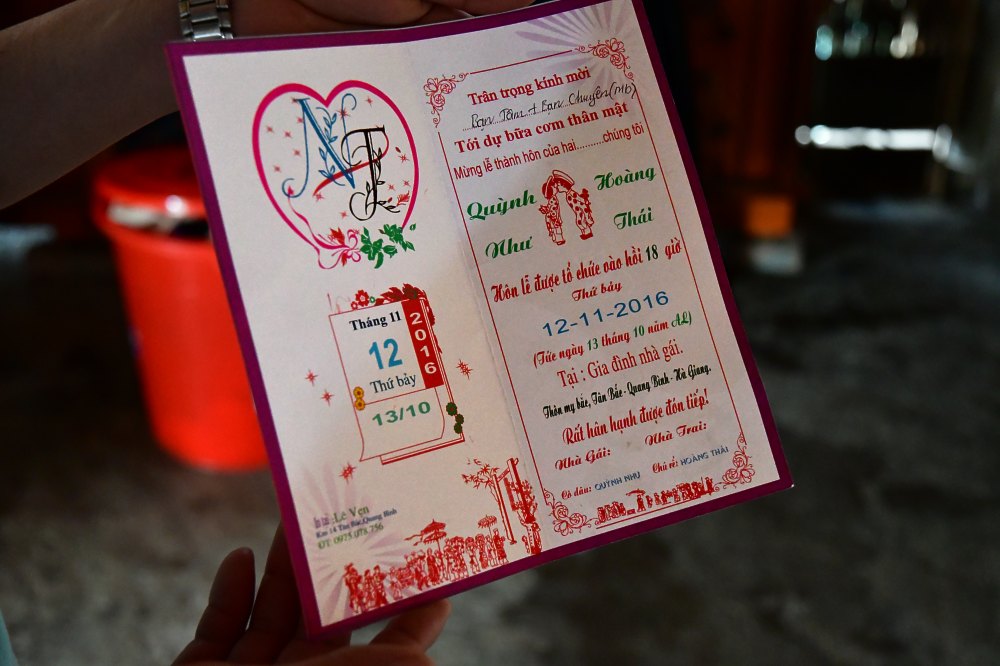 NT
Tháng 11
2016
12
Thứ bảy
13/10
Lê Vẹn
Km 14 Tân Bắc, Quang Bình
ĐT 0975.078.756
Trân trọng kính mời
Bạn Tâm + Bạn Chuyên (Mb)
Tới dự bữa cơm thân mật
Mừng lễ thành hôn của hai.........chúng tôi
Quỳnh Hoàng
Như Thái
Hôn lễ được tổ chức vào hồi 18 giờ
Thứ bảy
12-11-2016
(Tức ngày 13 tháng 10 năm ÂL)
Tại : Gia đình nhà gái.
Thôn my bắc, Tân Bắc - Quang Bình - Hà Giang.
Rất hân hạnh được đón tiếp!
Nhà Gái: Nhà Trai:
Cô dâu: QUỲNH NHƯ Chú rể: HOÀNG THÁI